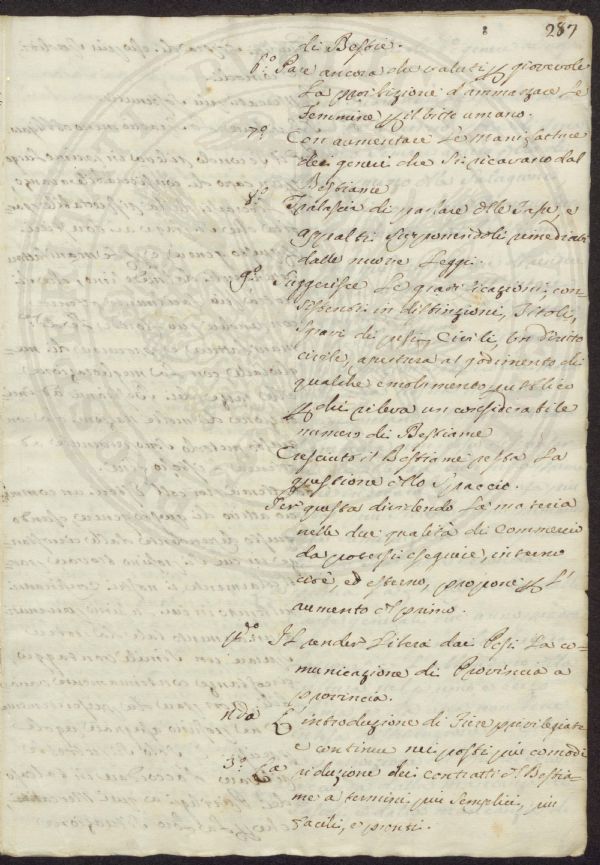 287
di Bestie.
6.º Pare ancora che valuti ꝑ giovevole
La proibizione d'ammazzare Le
Femmine ꝑ il vitto umano.
7.º Con aumentare Le manifatture
dei generi che si ricavano dal
Bestiame
8.º Tralascia di parlare delle Tasse, e
appalti supponendoli rimediati
dalle nuove Leggi.
9.º Suggerisce Le gratificazioni, con-
sistenti in distinzioni, Titoli,
sgravi di pesi Civili, un diritto
civile, apertura al godimento di
qualche emolumento pubblico
ꝑ chi rileva un considerabile
numero di Bestiame
Cresciuto il Bestiame resta La
questione dello Spaccio.
Per questa dividendo La materia
nelle due qualità di Commercio
da potersi eseguire, interno
cioè, ed esterno, propone ꝑ L'
aumento del primo.
pº Il render Libera dai Pesi La co-
municazione di Provincia a
provincia.
nda L'introduzione di Fiere privilegiate
e continue nei posti più comodi
3.º La riduzione dei contratti del Bestia-
me a termini più semplici, più
facili, e pronti.